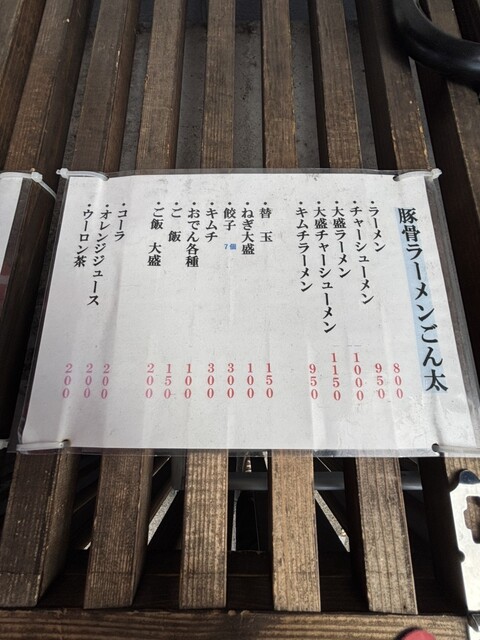 豚骨ラーメンごん太
・ラーメン 800
・チャーシューメン 950
・大盛ラーメン 1000
・大盛チャーシューメン 1150
・キムチラーメン 950
・替 玉 150
・ねぎ大盛 100
・餃子 7個 300
・キムチ 300
・おでん各種 100
・ご 飯 150
・ご飯 大盛 200
・コーラ 200
・オレンジジュース 200
・ウーロン茶 200